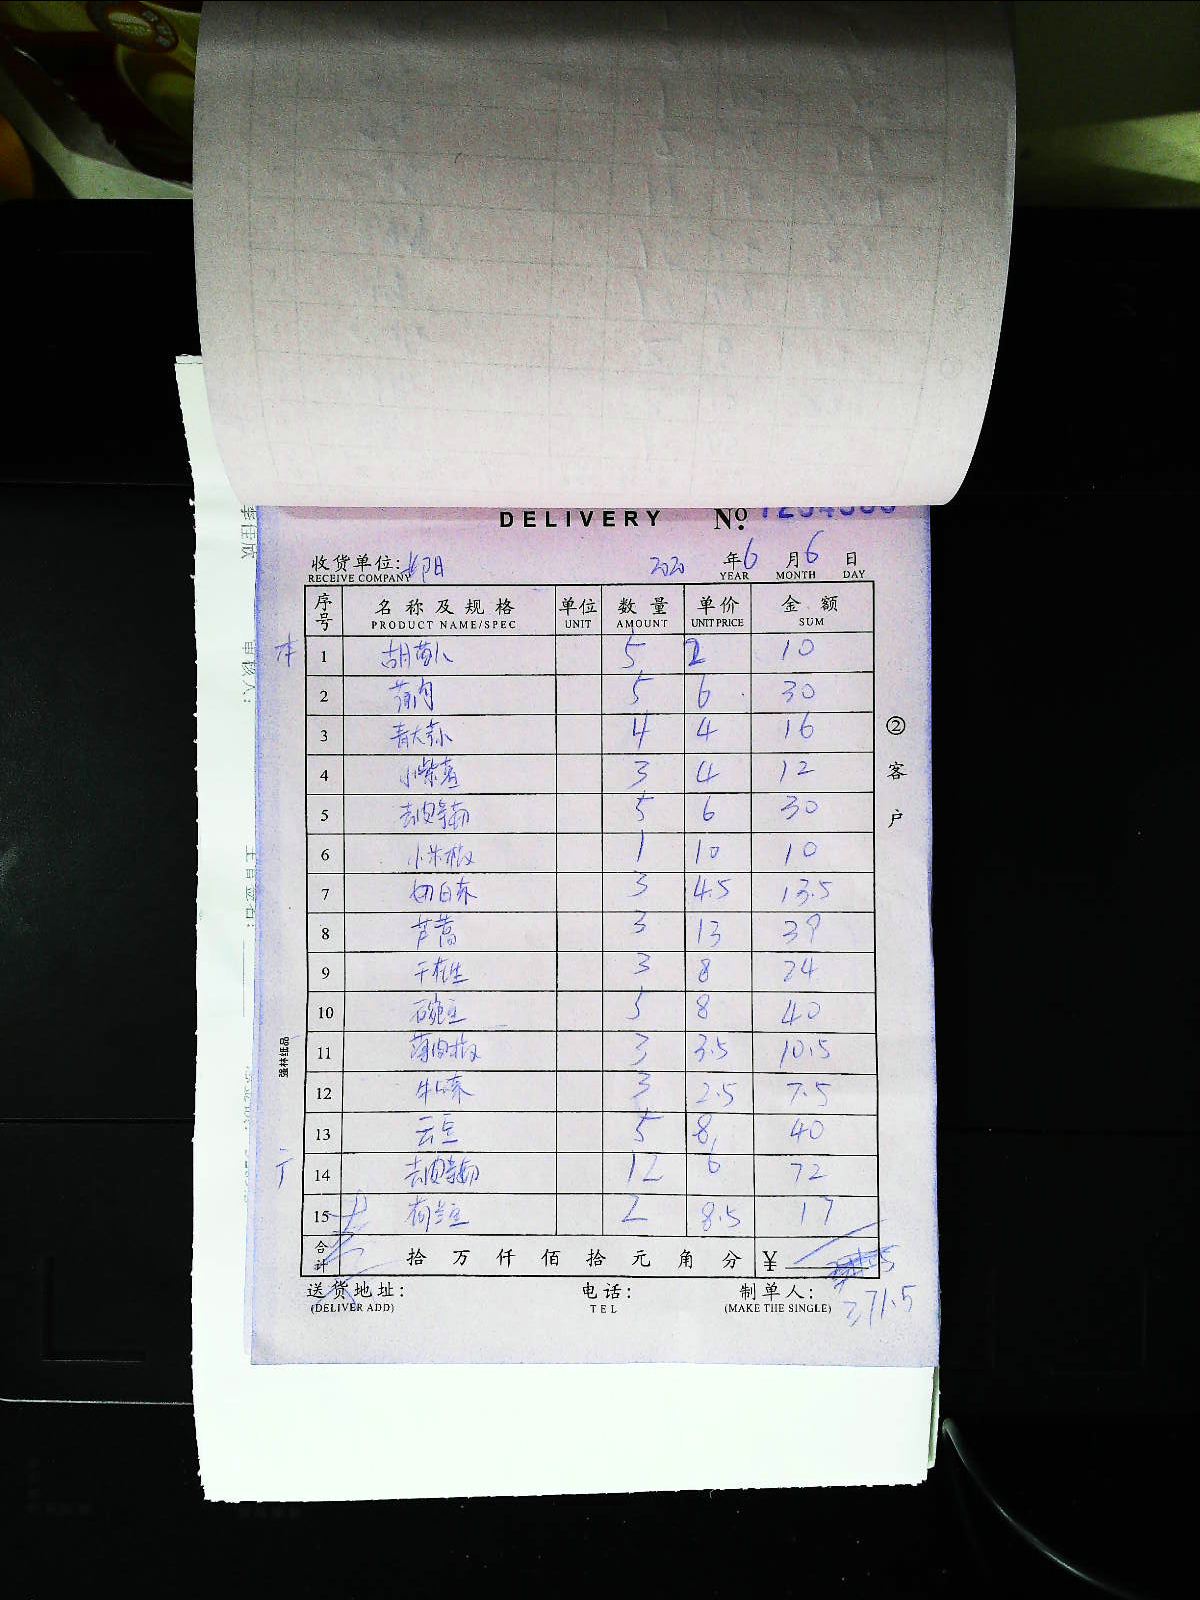 DELIVERY No.
收货单位: 2020 年 6 月 6 日
RECEIVE COMPANY YEAR MONTH DAY
序号 名称及规格 单位 数量 单价 金额
PRODUCT NAME/SPEC UNIT AMOUNT UNIT PRICE SUM
1 胡萝卜 5 2 10
2 5 6 30
3 4 4 16
4 小紫薯 3 4 12
5 去皮莴笋 5 6 30
6 小米椒 1 10 10
7 3 4.5 13.5
8 芦蒿 3 13 39
9 干花生 3 8 24
10 5 8 40
11 薄肉椒 3 3.5 10.5
12 3 2.5 7.5
13 云豆 5 8 40
14 12 6 72
15 荷兰豆 2 8.5 17
合计 拾万仟佰拾元角分 ¥
371.5
送货地址: 电话: 制单人:
(DELIVER ADD) TEL (MAKE THE SINGLE)
②客户
强林纸品